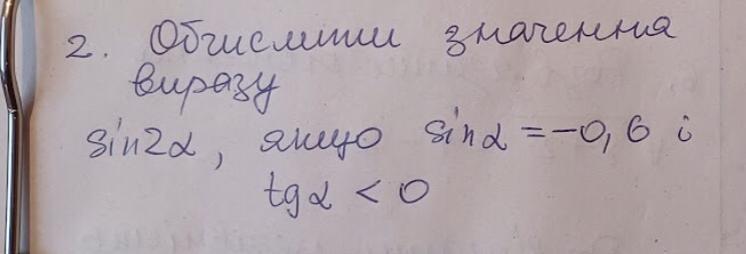 2. Обчислити значення
виразу
sin2α, якщо sinα = -0,6 і
tgα < 0